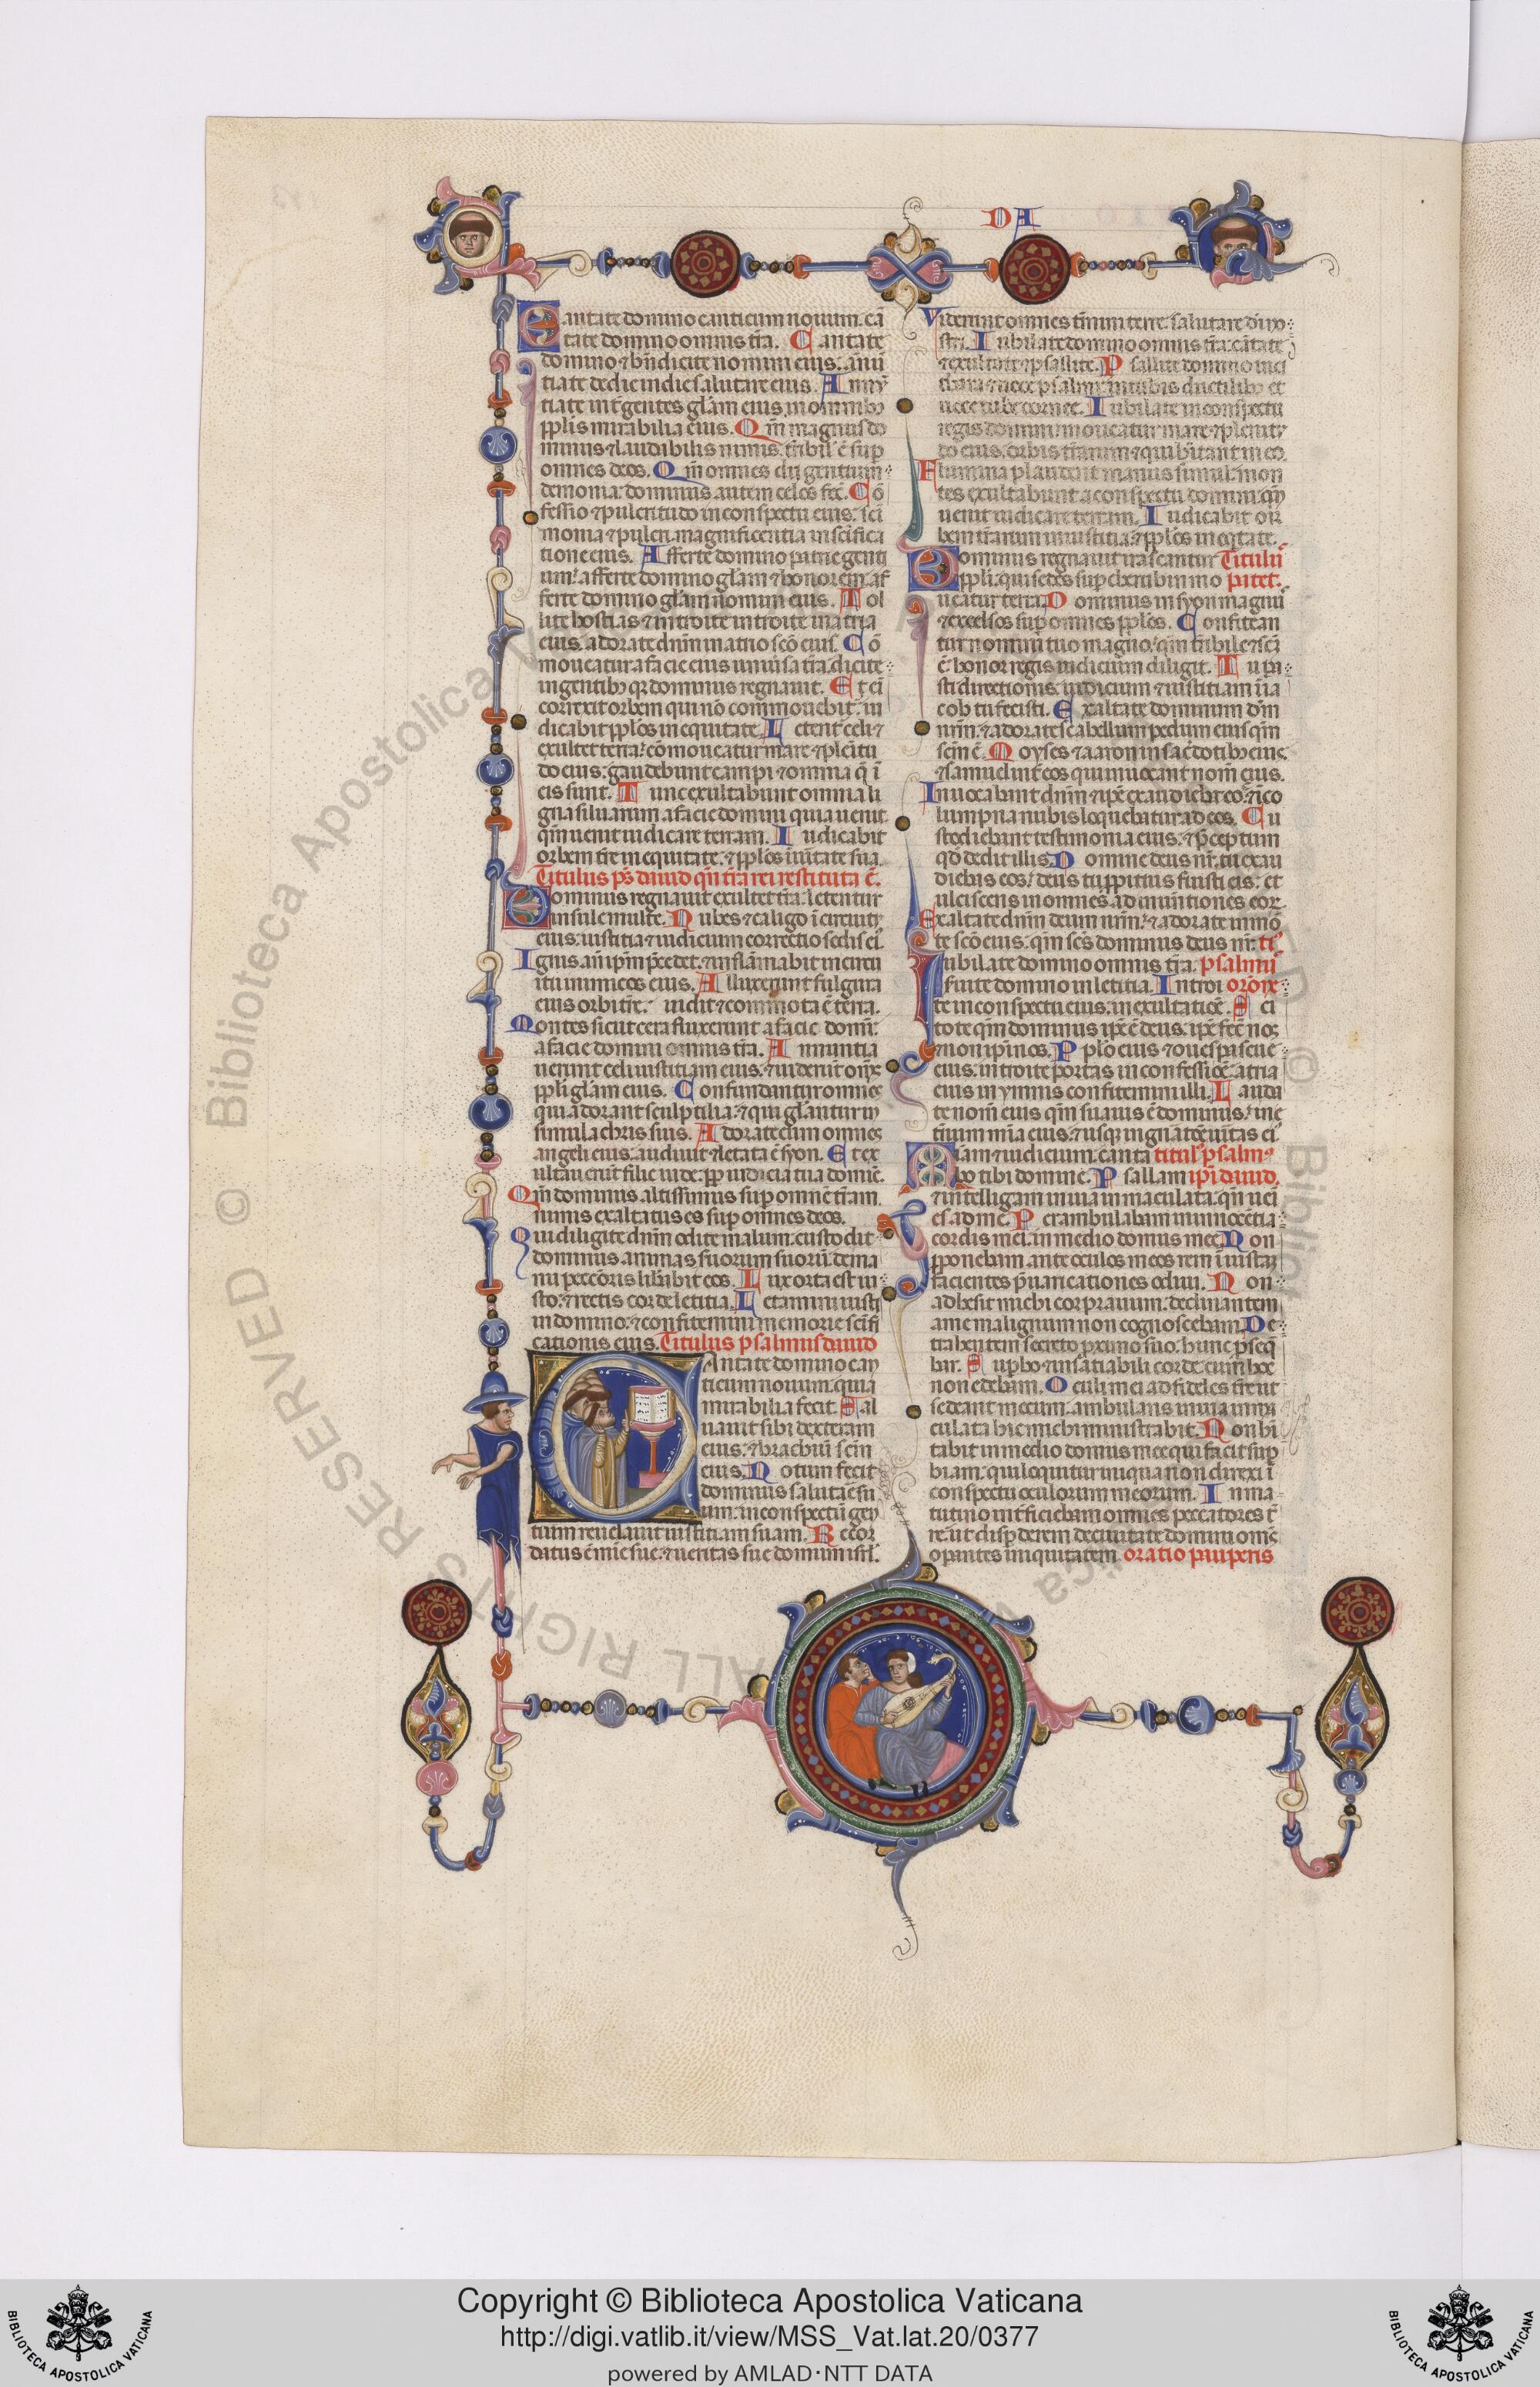 DA
Cantate domino canticum nouum. cã
tate domino omnis t̃ra. Cantate
domino ⁊ bñdicite nomini eius. ãnũ
tiate de die in diem salutare eius. Annũ
tiate int̃ gentes gl̃am eius. in omnibꝫ
pp̃lis mirabilia eius. Qm̃ magnus do
minus ⁊ laudibilis nimis. t̃ribil̃ ẽ sup̃
omnes deos. Qm̃ omnes dii gentium
demonia. dominus autem celos fec̃. Cõ
fessio ⁊ pulcritudo in conspectu eius. sc̃i
monia ⁊ pulcri. magnificentia in sc̃ifica
tione eius. Afferte domino patrie genti
um. afferte domino gl̃am ⁊ honorem. af
ferte domino gl̃am nomini eius. Tol
lite hostias ⁊ introite introite in atria
eius. adorate dñm in atrio sc̃o eius. Cõ
moueatur a facie eius uniũsa t̃ra. dicite
in gentibꝫ qꝫ dominus regnauit. Et eĩ
correxit orbem qui nõ commouebit̃. iu
dicabit pp̃los in equitate. Letent̃ celi ⁊
exultet terra. cõmoueatur mare ⁊ plẽitu
do eius. gaudebunt campi ⁊ omnia q̃ ĩ
eis sunt. Tunc exultabunt omnia li
gna siluarum a facie domini quia uenit
qm̃ uenit iudicare terram. Iudicabit
orbem t̃re in equitate. ⁊ pp̃los in ũitate sua.
Titulus ps̃ dauid qñ t̃ra rei restituta ẽ.
Dominus regnauit exultet t̃ra. letentur
insule multe. Nubes ⁊ caligo ĩ circuitu
eius. iustitia ⁊ iudicium correctio sedis eĩ
Ignis añ ip̃m p̃cedet. ⁊ inflãmabit in circu
itu inimicos eius. Alluxerunt fulgura
eius orbi t̃re. uidit ⁊ commota ẽ terra.
Montes sicut cera fluxerunt a facie domĩ.
a facie domini omnis t̃ra. Annuntia
uerunt celi iustitiam eius. ⁊ uiderũt om̃s
pp̃li gl̃am eius. Confundantur omnes
qui adorant sculptilia. ⁊ qui gl̃antur in
simulachris suis. Adorate eum omnes
angeli eius. audiuit ⁊ letata ẽ syon. Et ex
ultauerũt filie iude. pp̃ iudicia tua domiẽ.
Qm̃ dominus altissimus sup̃ omnẽ t̃ram.
nimis exaltatus es sup̃ omnes deos.
Qui diligite dñm odite malum. custodit
dominus animas suorum suorũ. de ma
nu peccõris lib̃abit eos. Lux orta est iu
sto. ⁊ rectis corde letitia. Letamini iusti
in domino. ⁊ confitemini memorie sc̃ifi
cationis eius. Titulus psalmus dauid
Cantate domino can
ticum nouum. quia
mirabilia fecit. Sal
uauit sibi dexteram
eius. ⁊ brachiũ sc̃m
eius. Notum fecit
dominus salutãe su
um. in conspectũ gen
tium reuelauit iustitiam suam. Recor
datus ẽ mĩe sue. ⁊ ueritas sue domui isrl̃.
Viderunt omnes t̃mini terre. salutare di no
stri. Iubilate domino omnis t̃ra. cãtate
⁊ exultate ⁊ psallite. Psallite domino in ci
thara ⁊ uoce psalmi. in tubis ductilibꝫ et
uoce tube cornee. Iubilate in conspectu
regis domini. moueatur mare ⁊ plenitu
do eius. orbis t̃rarum ⁊ qui habitant in eo.
Flumina plaudent manus simul. mon
tes exultabunt a conspectu domini. qm̃
uenit iudicare terram. Iudicabit or
bem t̃rarum in iustitia. ⁊ pp̃los in eq̃tate.
Dominus regnauit irascantur Titulũ
pp̃li. qui sedes sup̃ cherubin mo patet.
ueatur terra. Dominus in syon magnũ
⁊ excelsos sup̃ omnes pp̃los. Confitean
tur nomini tuo magno. qm̃ t̃ribile ⁊ sc̃m
ẽ. honor regis iudicium diligit. Tu pa
sti directiones. iudicium ⁊ iustitiam in ia
cob tu fecisti. Exaltate dominum dm̃
nr̃m. ⁊ adorate scabellum pedum eius qm̃
sc̃m ẽ. Moyses ⁊ aaron in sac̃dotibꝫ eius.
⁊ samuel int̃ eos qui inuocant nom̃ eius.
Inuocabant dñm ⁊ ip̃e exaudiebat eos. ĩ co
lumpna nubis loquebatur ad eos. Cu
stodiebant testimonia eius. ⁊ p̃ceptum
qd̃ dedit illis. Domine deus nr̃. tu exau
diebas eos. deus tu p̃pitius fuisti eis. et
ulciscens in omnes adinũntiones eoꝝ.
Exaltate dñm deum nr̃m. ⁊ adorate in mõ
te sc̃o eius. qm̃ sc̃s dominus deus nr̃. ti
Iubilate domino omnis t̃ra. psalmũ
seruite domino in letitia. Introi
te in conspectu eius. in exultatiõe. Sci
tote qm̃ dominus ip̃e ẽ deus. ip̃e fec̃ nos
⁊ non ip̃i nos. Ppl̃o eius ⁊ oues pascue
eius. introite portas in confessiõe. atria
eius in ymnis confitemini illi. Lauda
te nom̃ eius qm̃ suauis ẽ dominus. in e
t̃num mĩa eius. ⁊ usqꝫ in gñatõẽ ũitas eĩ
Miam ⁊ iudicium. canta titul̃ psalm
bo tibi domine. Psallam ip̃i dauid.
⁊ intelligam in uia immaculata. qñ ueni
es ad me. Perambulabam in innocẽtia
cordis mei. in medio domus mee. Non
p̃ponebam ante oculos meos rem iniustam
facientes p̃uaricationes odiui. Non
adhesit michi cor prauum. declinantem
a me malignum non cognoscebam. De
trahentem secreto p̃ximo suo. hunc p̃seq̃
bar. Supbo ⁊ insatiabili corde cum hoc
non edebam. Oculi mei ad fideles t̃re ut
sedeant mecum. ambulans in uia imma
culata hic michi ministrabit. Non hĩ
tabit in medio domus mee qui facit sup̃
biam. qui loquitur iniqua non direxi ĩ
conspectu oculorum meorum. In ma
tutino int̃ficiebam omnes peccatores t̃
re. ut disp̃derem de ciuitate domini om̃s
op̃antes iniquitatem. oratio pauperis
Copyright © Biblioteca Apostolica Vaticana
http://digi.vatlib.it/view/MSS_Vat.lat.20/0377
powered by AMLAD·NTT DATA
BIBLIOTECA APOSTOLICA VATICANA
BIBLIOTECA APOSTOLICA VATICANA